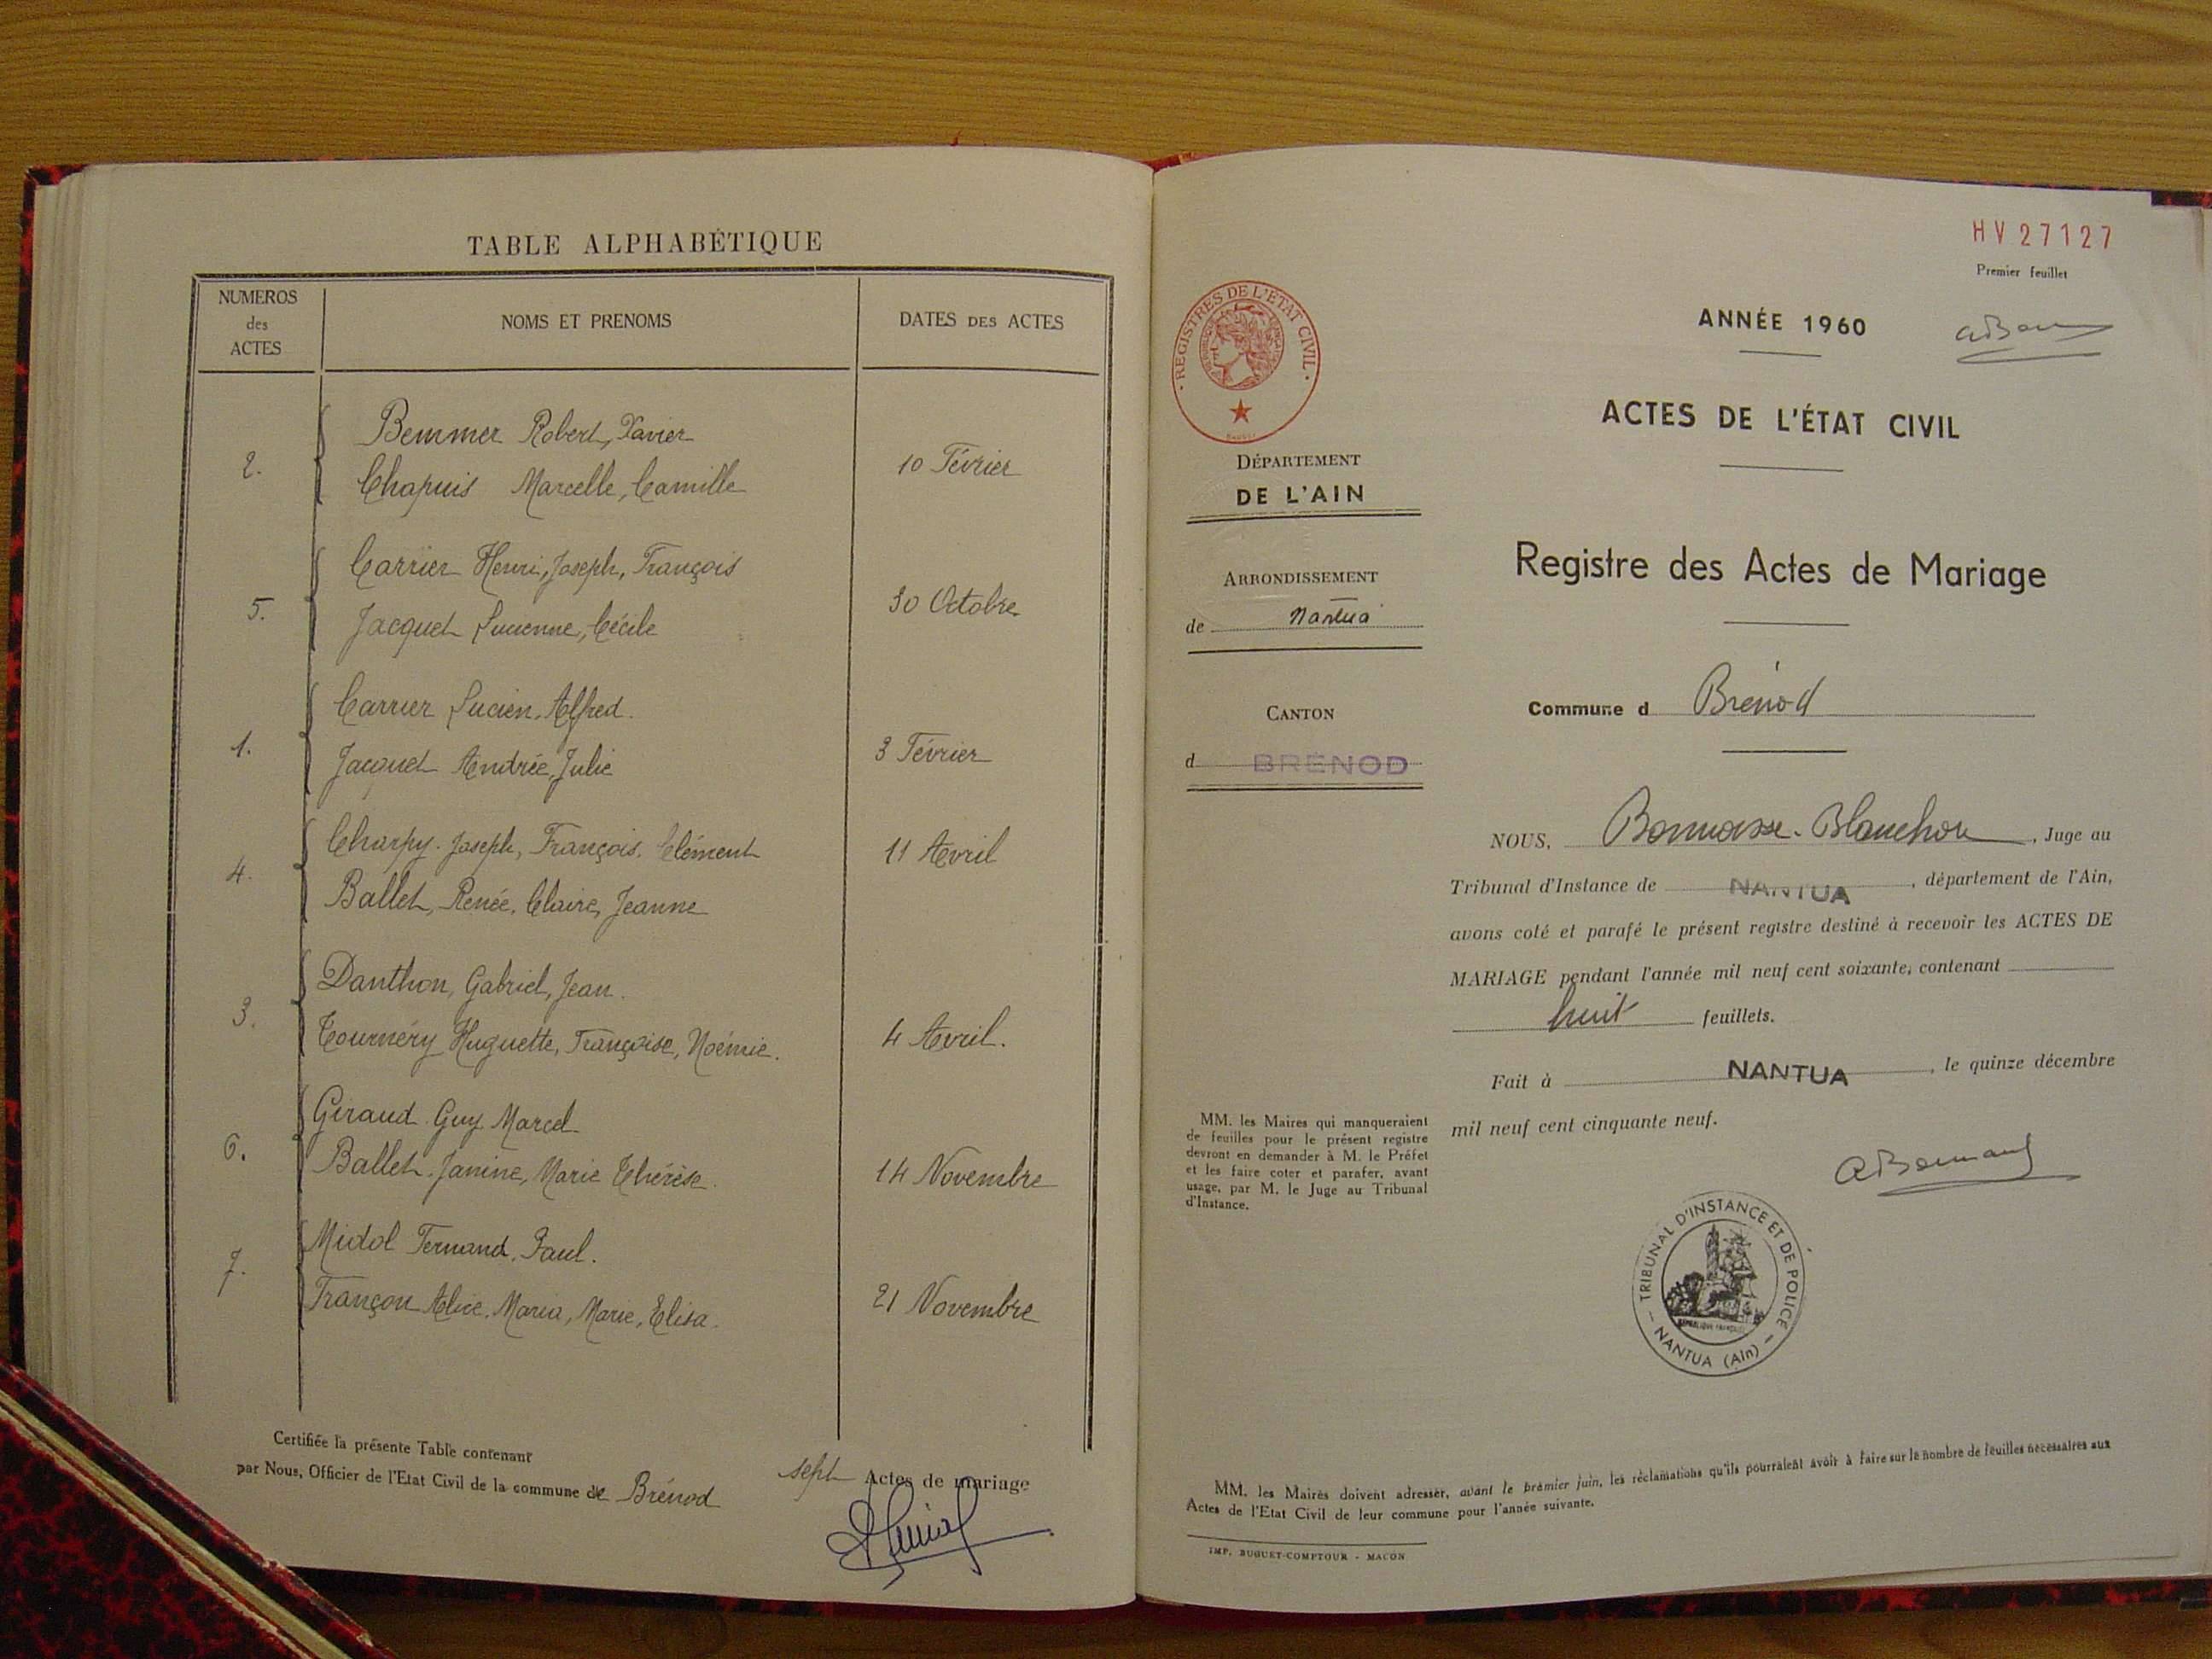 TABLE ALPHABÉTIQUE
NUMEROS des ACTES
NOMS ET PRENOMS
DATES DES ACTES
2.
Bemmer Robert, Xavier
Chapuis Marcelle, Camille
10 Février
5.
Carrier Henri, Joseph, François
Jacquet Lucienne, Cécile
30 Octobre
1.
Carrier Lucien, Alfred.
Jacquet Andrée, Julie
3 Février
4.
Charpy Joseph, François, Clément
Ballet, Renée, Claire, Jeanne
11 Avril
3.
Danthon, Gabriel, Jean.
Tournéry Huguette, Françoise, Noémie.
4 Avril.
6.
Giraud Guy Marcel
Ballet Janine, Marie Thérèse.
14 Novembre
7.
Midol Fernand, Paul.
Françon Alice, Maria, Marie, Elisa.
21 Novembre
Certifiée la présente Table contenant sept Actes de mariage
par Nous, Officier de l'Etat Civil de la commune de Brénod
HV 27127
Premier feuillet
REGISTRES DE L'ÉTAT CIVIL
ANNÉE 1960
ACTES DE L'ÉTAT CIVIL
DÉPARTEMENT
DE L'AIN
ARRONDISSEMENT
de Nantua
CANTON
d BRÉNOD
Registre des Actes de Mariage
Commune d Brénod
NOUS, Bonnasse-Blanchon, Juge au
Tribunal d'Instance de NANTUA, département de l'Ain,
avons coté et parafé le présent registre destiné à recevoir les ACTES DE
MARIAGE pendant l'année mil neuf cent soixante, contenant
huit feuillets.
Fait à NANTUA, le quinze décembre
mil neuf cent cinquante neuf.
MM. les Maires qui manqueraient
de feuilles pour le présent registre
devront en demander à M. le Préfet
et les faire coter et parafer, avant
usage, par M. le Juge au Tribunal
d'Instance.
TRIBUNAL D'INSTANCE ET DE POLICE
NANTUA (Ain)
MM. les Maires doivent adresser, avant le premier juin, les réclamations qu'ils pourraient avoir à faire sur le nombre de feuilles nécessaires aux
Actes de l'Etat Civil de leur commune pour l'année suivante.
IMP. BUGUET-COMPTOUR - MACON